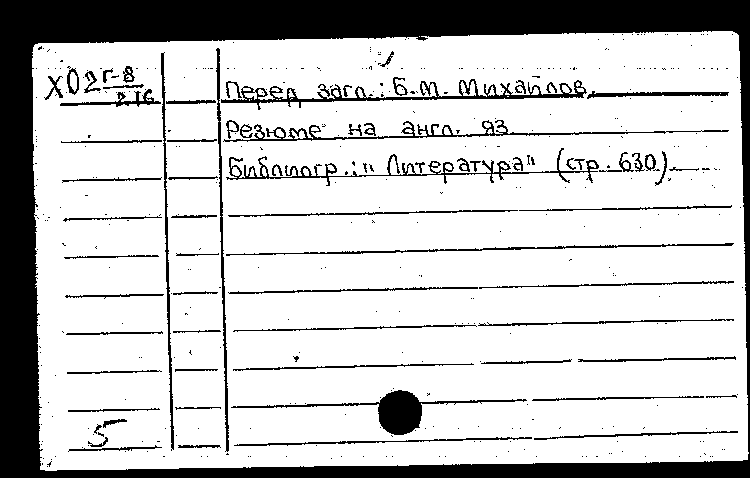 Х02 Г-8
2 16
Перед загл.: Б.М. Михайлов.
Резюме на англ. яз
Библиогр.: "Литература" (стр. 630).
5